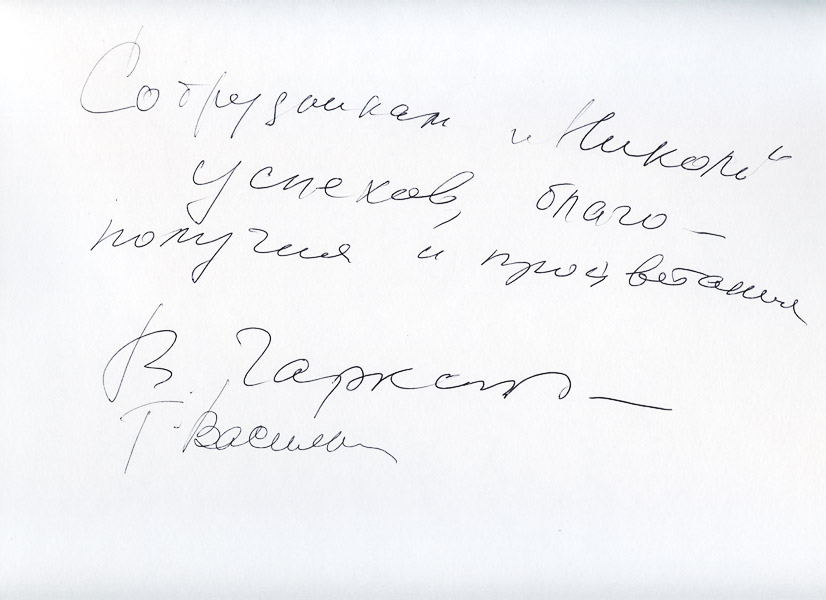 Сотрудникам "Никор"
успехов, благо-
получия и процветания
В.
Т. Василь